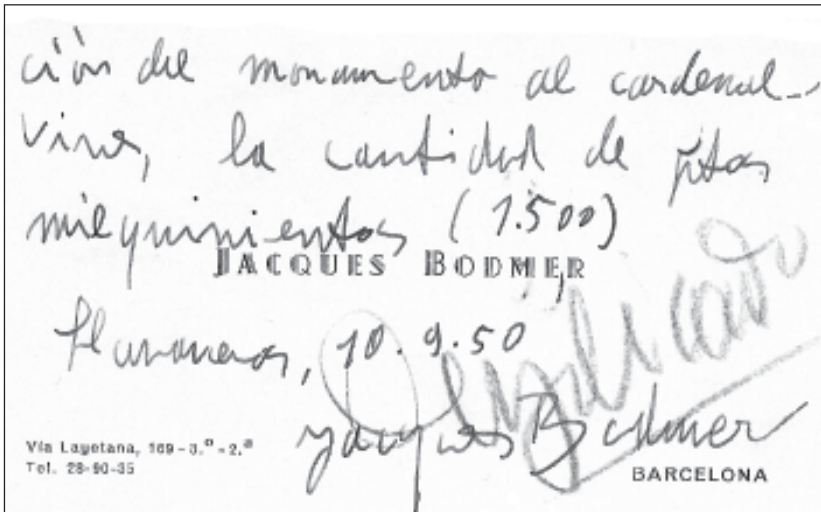 ción del monumento al cardenal
Vives, la cantidad de ptas
mil quinientas (1.500)
JACQUES BODMER
Llavaneras, 10.9.50
Jacques Bodmer
Vía Layetana, 169 - 3.º - 2.ª
Tel. 28-90-35
BARCELONA